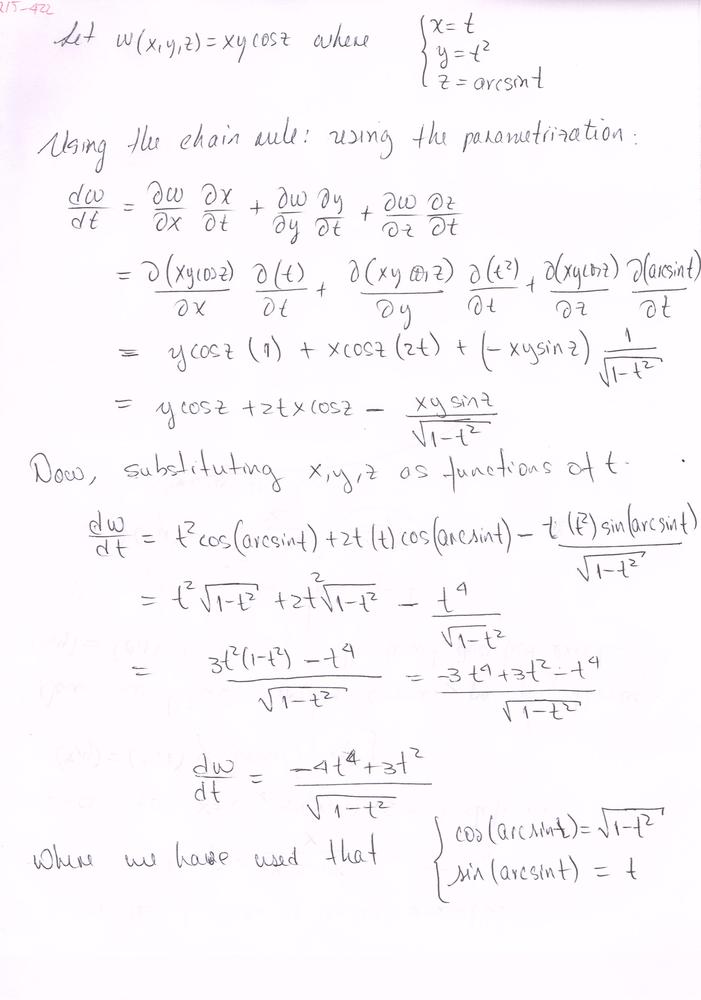 215-422
Let w(x,y,z) = xy cos z where { x = t
y = t²
z = arcsin t
Using the chain rule: using the parametrization:
dw/dt = ∂w/∂x ∂x/∂t + ∂w/∂y ∂y/∂t + ∂w/∂z ∂z/∂t
= ∂(xy cos z)/∂x ∂(t)/∂t + ∂(xy cos z)/∂y ∂(t²)/∂t + ∂(xy cos z)/∂z ∂(arcsin t)/∂t
= y cos z (1) + x cos z (2t) + (- xy sin z) 1/√(1-t²)
= y cos z + 2t x cos z - xy sin z/√(1-t²)
Now, substituting x, y, z as functions of t.
dw/dt = t² cos(arcsin t) + 2t (t) cos(arcsin t) - t (t²) sin(arcsin t)/√(1-t²)
= t² √(1-t²) + 2t² √(1-t²) - t⁴/√(1-t²)
= 3t²(1-t²) - t⁴/√(1-t²) = -3t⁴ + 3t² - t⁴/√(1-t²)
dw/dt = -4t⁴ + 3t²/√(1-t²)
where we have used that { cos(arcsin t) = √(1-t²)
sin(arcsin t) = t